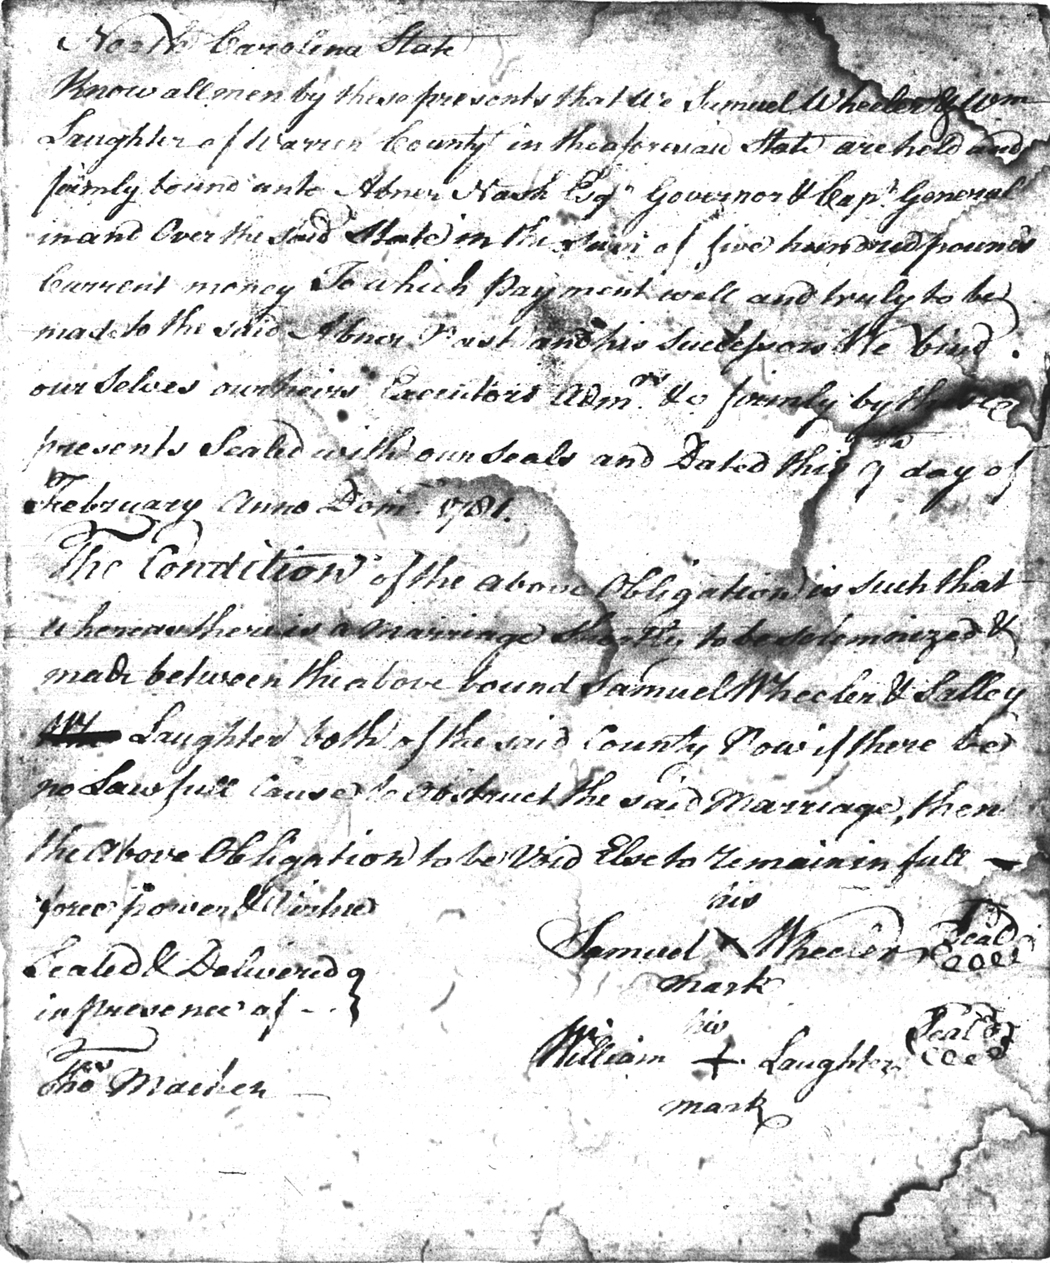 North Carolina State
Know all men by these presents that We Samuel Wheeler & Wm
Laughter of Warren County in the aforesaid State are held and
firmly bound unto Abner Nash Esqr Governor & Capt General
in and Over the said State in the sum of five hundred pounds
Current money To which Payment well and truly to be
made to the said Abner Nash and his Successors We bind
our Selves our heirs Executors Admrs &c firmly by these
presents Sealed with our Seals and Dated this 9th day of
February Anno Dom. 1781.
The Condition of the above Obligation is such that
whereas there is a marriage Shortly to be solemnized &
made between the above bound Samuel Wheeler & Salley
Laughter both of the said County Now if there be
no Lawfull Cause to Obstruct the said Marriage, then
the Above Obligation to be Void Else to remain in full
force power & Virtue
his
Samuel X Wheeler Seal
mark
Sealed & Delivered
in presence of
his
William + Laughter Seal
mark
Thos